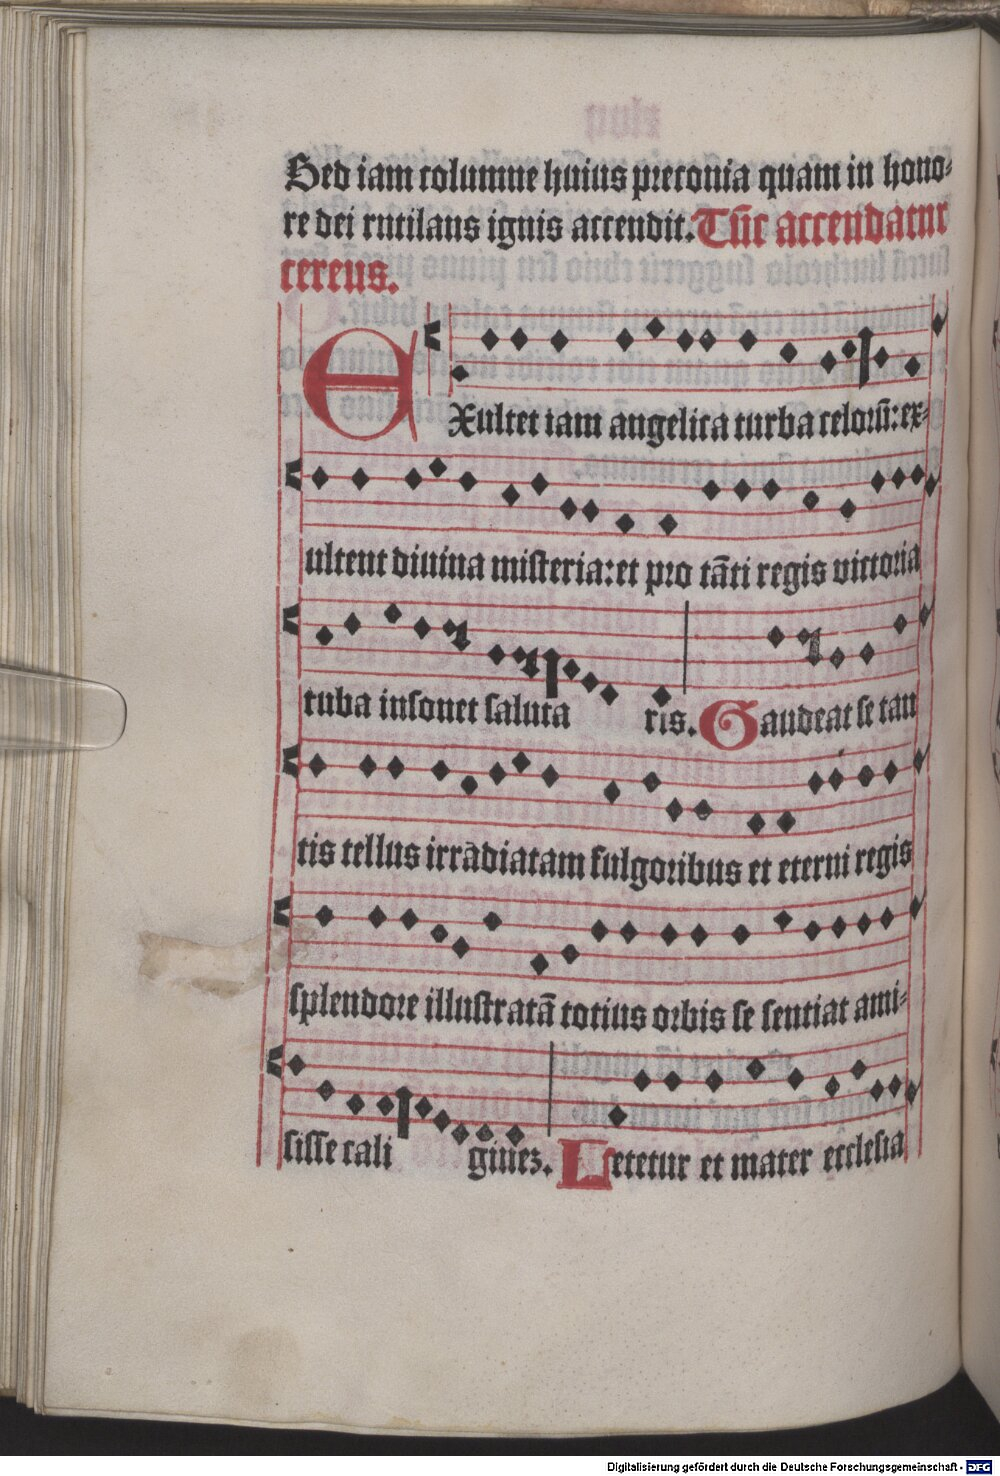 Sed iam columne huius preconia quam in hono-
re dei rutilans ignis accendit. Tūc accendatur
cereus.
EXultet iam angelica turba celorū: ex-
ultent diuina misteria: et pro tāti regis victoria
tuba insonet saluta ris. Gaudeat se tan
tis tellus irradiatam fulgoribus et eterni regis
splendore illustratā totius orbis se sentiat ami-
sisse cali ginez. Letetur et mater ecclesia
Digitalisierung gefördert durch die Deutsche Forschungsgemeinschaft - DFG